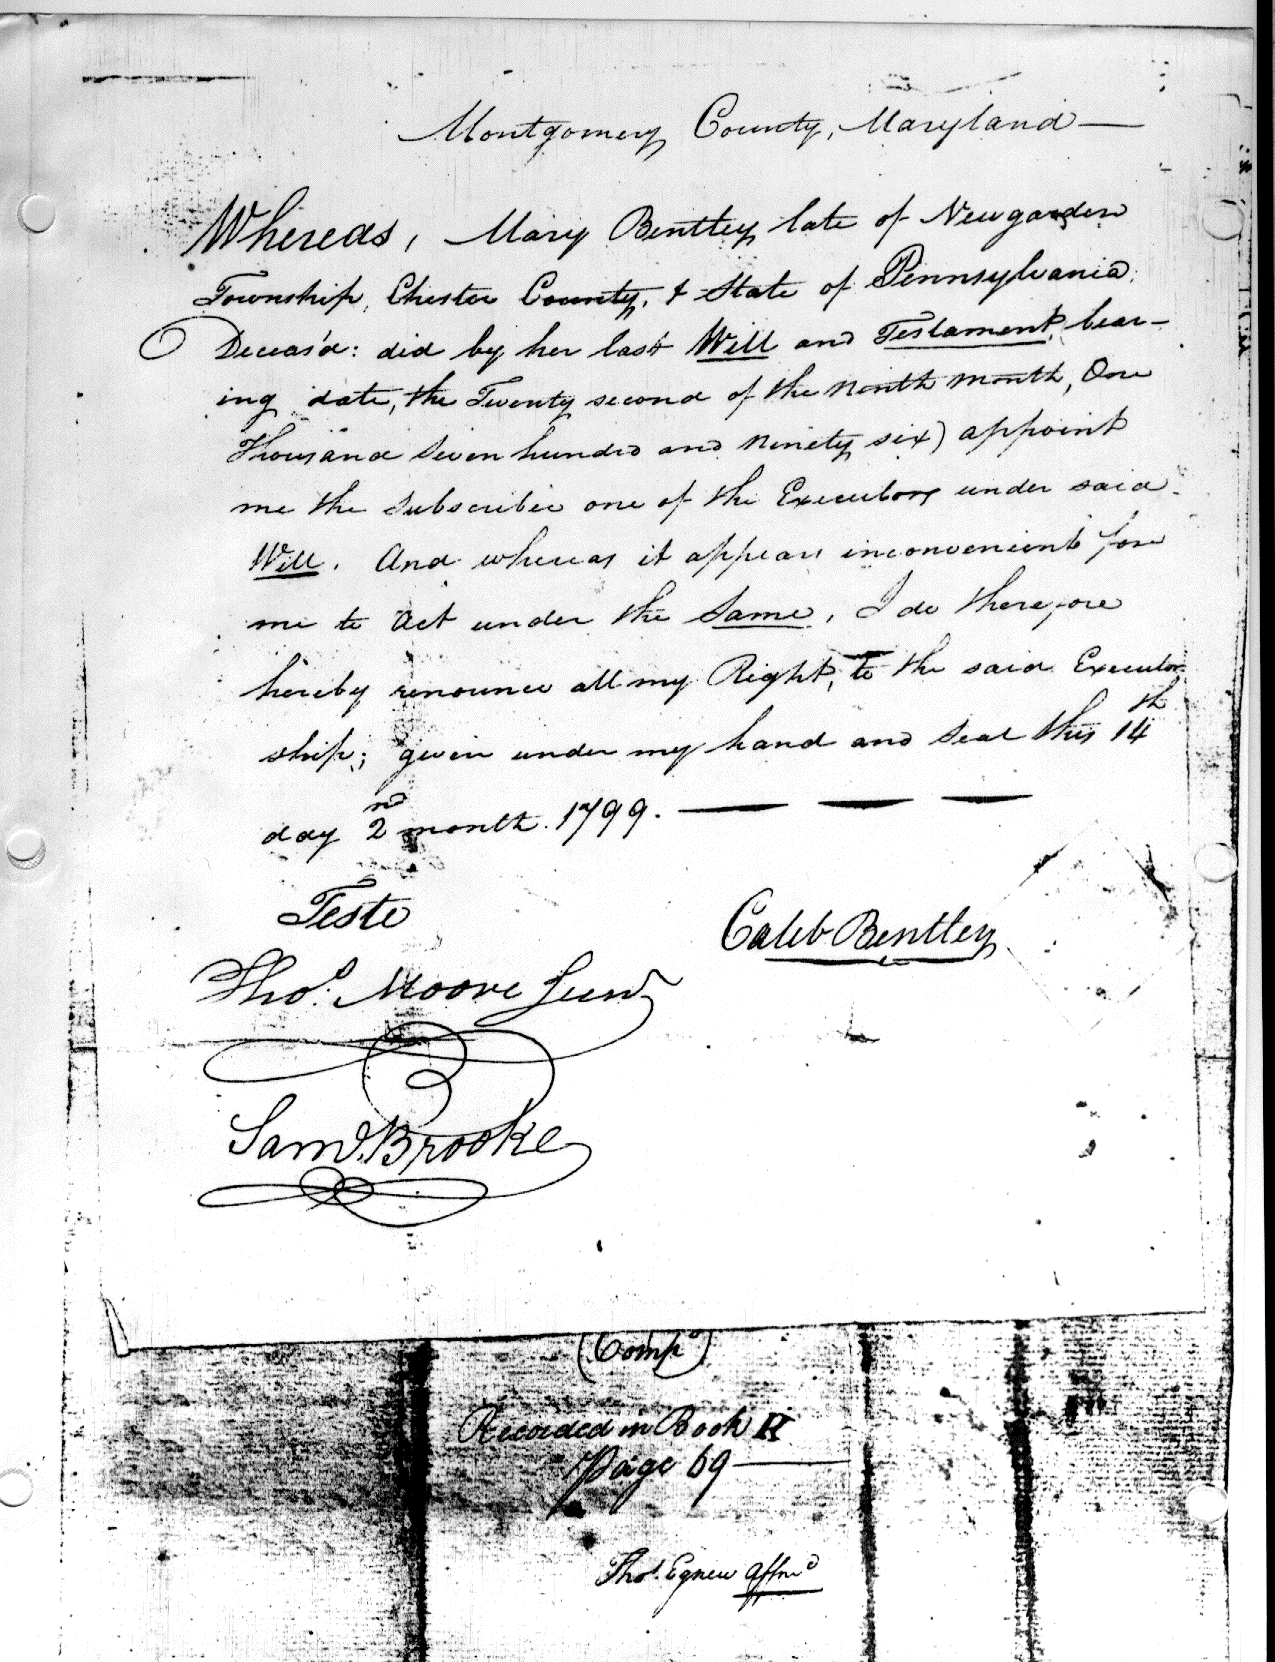 Montgomery County, Maryland —
Whereas, Mary Bentley late of Newgarden
Township, Chester County, & State of Pennsylvania.
Deceas'd: did by her last Will and Testament, bear-
ing date, the Twenty second of the Ninth month, One
Thousand Seven hundred and Ninety six) appoint
me the Subscriber one of the Executors under said
Will. And whereas it appears inconvenient for
me to Act under the Same, I do therefore
hereby renounce all my Right, to the said Executor
ship; given under my hand and Seal this 14th
day 2nd month. 1799. — — —
Teste
Caleb Bentley
Thos. Moore Junr
Saml. Brooke
(Compd)
Recorded in Book K
Page 69 —
Thos. Egnew affmd